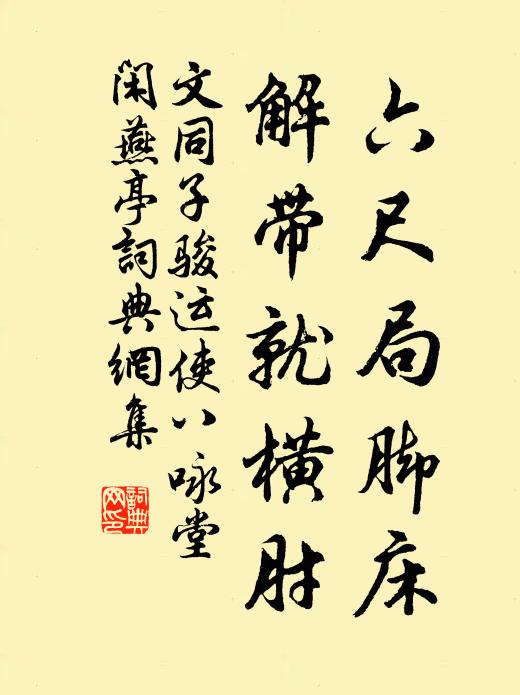 六尺局脚床
解带就横肘
文同子骏运使八咏堂
闲燕亭詞典網集
詞典
网印